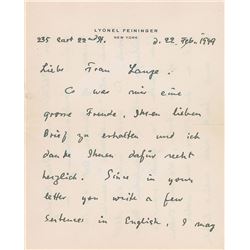 LYONEL FEININGER
NEW YORK
235 East 22nd St. d. 22. Feb. 1949
Liebe Frau Lange.
Es war mir eine
grosse Freude, Ihren lieben
Brief zu erhalten und ich
danke Ihnen dafür recht
herzlich. Since in your
letter you write a few
sentences in English, I may